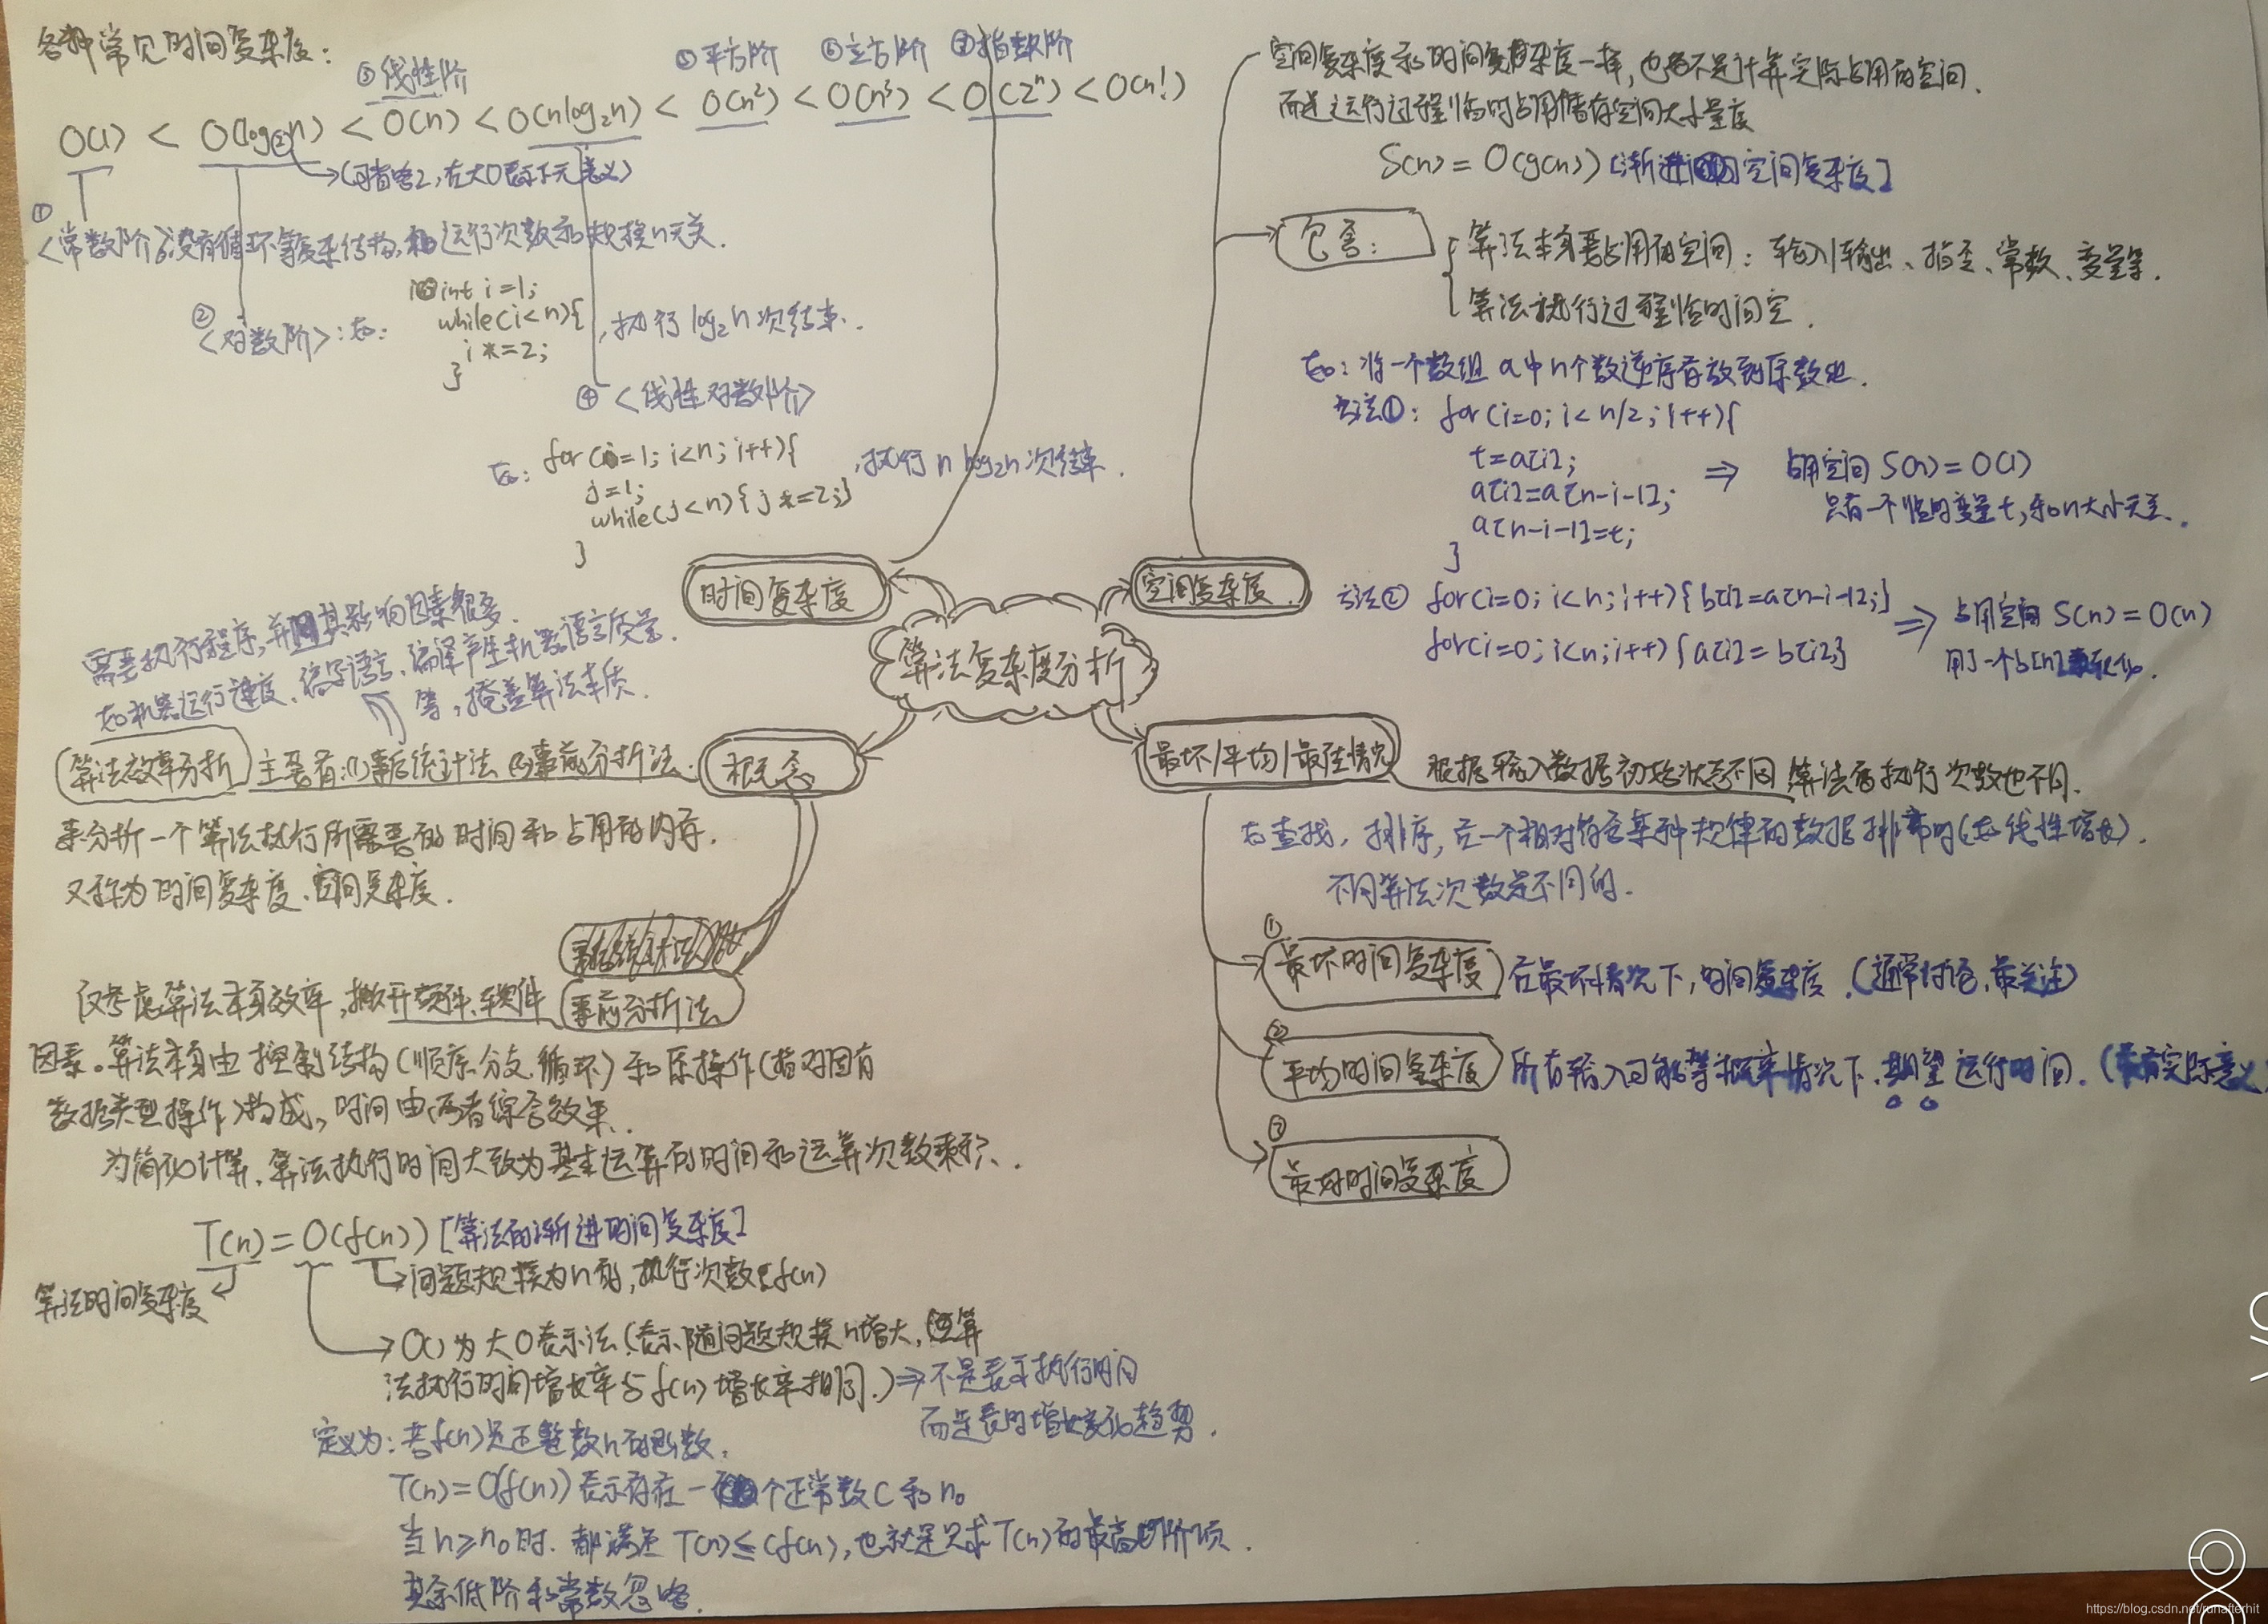 各种常见时间复杂度:
③线性阶 ⑤平方阶 ⑥立方阶 ⑦指数阶
O(1) < O(log₂n) < O(n) < O(nlog₂n) < O(n²) < O(n³) < O(2ⁿ) < O(n!)
→(可省略2,在大O表示下无意义)
①
<常数阶>:没有循环等复杂结构,运行次数和规模n无关.
②
<对数阶>:如:
int i=1;
while(i<n){
i*=2;
}
,执行log₂n次结束.
④<线性对数阶>
如: for(i=1; i<n; i++){
j=1;
while(j<n){j*=2;}
}
,执行nlog₂n次结束.
时间复杂度
空间复杂度和时间复杂度一样,也不是计算实际占用的空间.
而是运行过程临时占用储存空间大小量度
S(n)=O(g(n)) [渐进 空间复杂度]
包含:
算法本身要占用的空间:输入/输出、指令、常数、变量等.
算法执行过程临时间空.
如:将一个数组a中n个数逆序存放到原数组.
方法①: for(i=0; i<n/2; i++){
t=a[i];
a[i]=a[n-i-1];
a[n-i-1]=t;
}
⇒ 占用空间 S(n)=O(1)
只有一个临时变量t,和n大小无关.
方法② for(i=0; i<n; i++){b[i]=a[n-i-1];}
for(i=0; i<n; i++){a[i]=b[i];}
⇒ 占用空间 S(n)=O(n)
用了一个b[n]
空间复杂度.
算法复杂度分析
需要执行程序,并且其影响因素很多.
如机器运行速度、编写语言、编译产生机器语言质量
等,掩盖算法本质.
算法效率分析 主要有:(1)事后统计法 (2)事前分析法.
概念
来分析一个算法执行所需要的时间和占用的内存.
又称为时间复杂度、空间复杂度.
仅考虑算法本身效率,撇开硬件、软件 事前分析法
因素。算法本身由控制结构(顺序.分支.循环)和原操作(指对固有
数据类型操作)构成,时间由两者综合效果.
为简化计算,算法执行时间大致为基本运算的时间和运算次数乘积.
T(n)=O(f(n)) [算法的渐进时间复杂度]
→问题规模为n时,执行次数f(n)
算法时间复杂度
→O()为大O表示法(表示随问题规模n增大,算
法执行时间增长率与f(n)增长率相同.)⇒不是表示执行时间
而是表时增长变化趋势.
定义为:若f(n)是正整数n的函数,
T(n)=O(f(n))表示存在一个正常数C和n₀
当n≥n₀时.都满足T(n)≤Cf(n),也就是只求T(n)的最高阶项.
其余低阶和常数忽略.
最坏/平均/最佳情况 根据输入数据初始状态不同 算法的执行次数也不同.
在查找,排序,在一个相对符合某种规律的数据排布时(如线性增长).
不同算法次数是不同的.
①
最坏时间复杂度 在最坏情况下,时间复杂度.(通常讨论,最关注)
②
平均时间复杂度 所有输入可能等概率情况下.期望运行时间.(最有实际意义
③
最好时间复杂度
https://blog.csdn.net/runafterhit